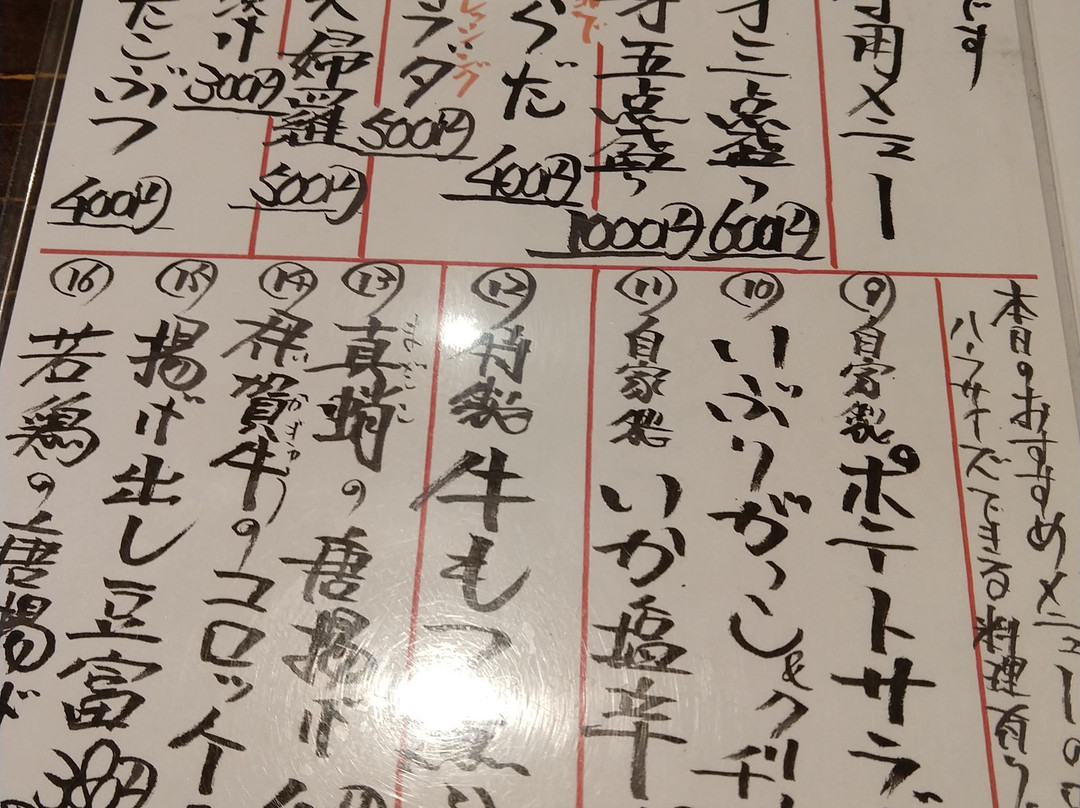 です
用メニュー
三点盛り
600円
五点盛り
1000円
くらだ
400円
ラダ
500円
婦羅
500円
漬け
300円
たこぶつ
400円
本日のおすすめメニューの
ハーフサイズできる料理有り
⑨自家製ポテトサラダ
⑩いぶりがっこ&クリ
⑪自家製いか塩辛
⑫特製牛もつ煮
⑬真蛸の唐揚げ
まだこ
⑭群賀牛のコロッケ
⑮揚げ出し豆富
380円
⑯若鶏の唐揚げ